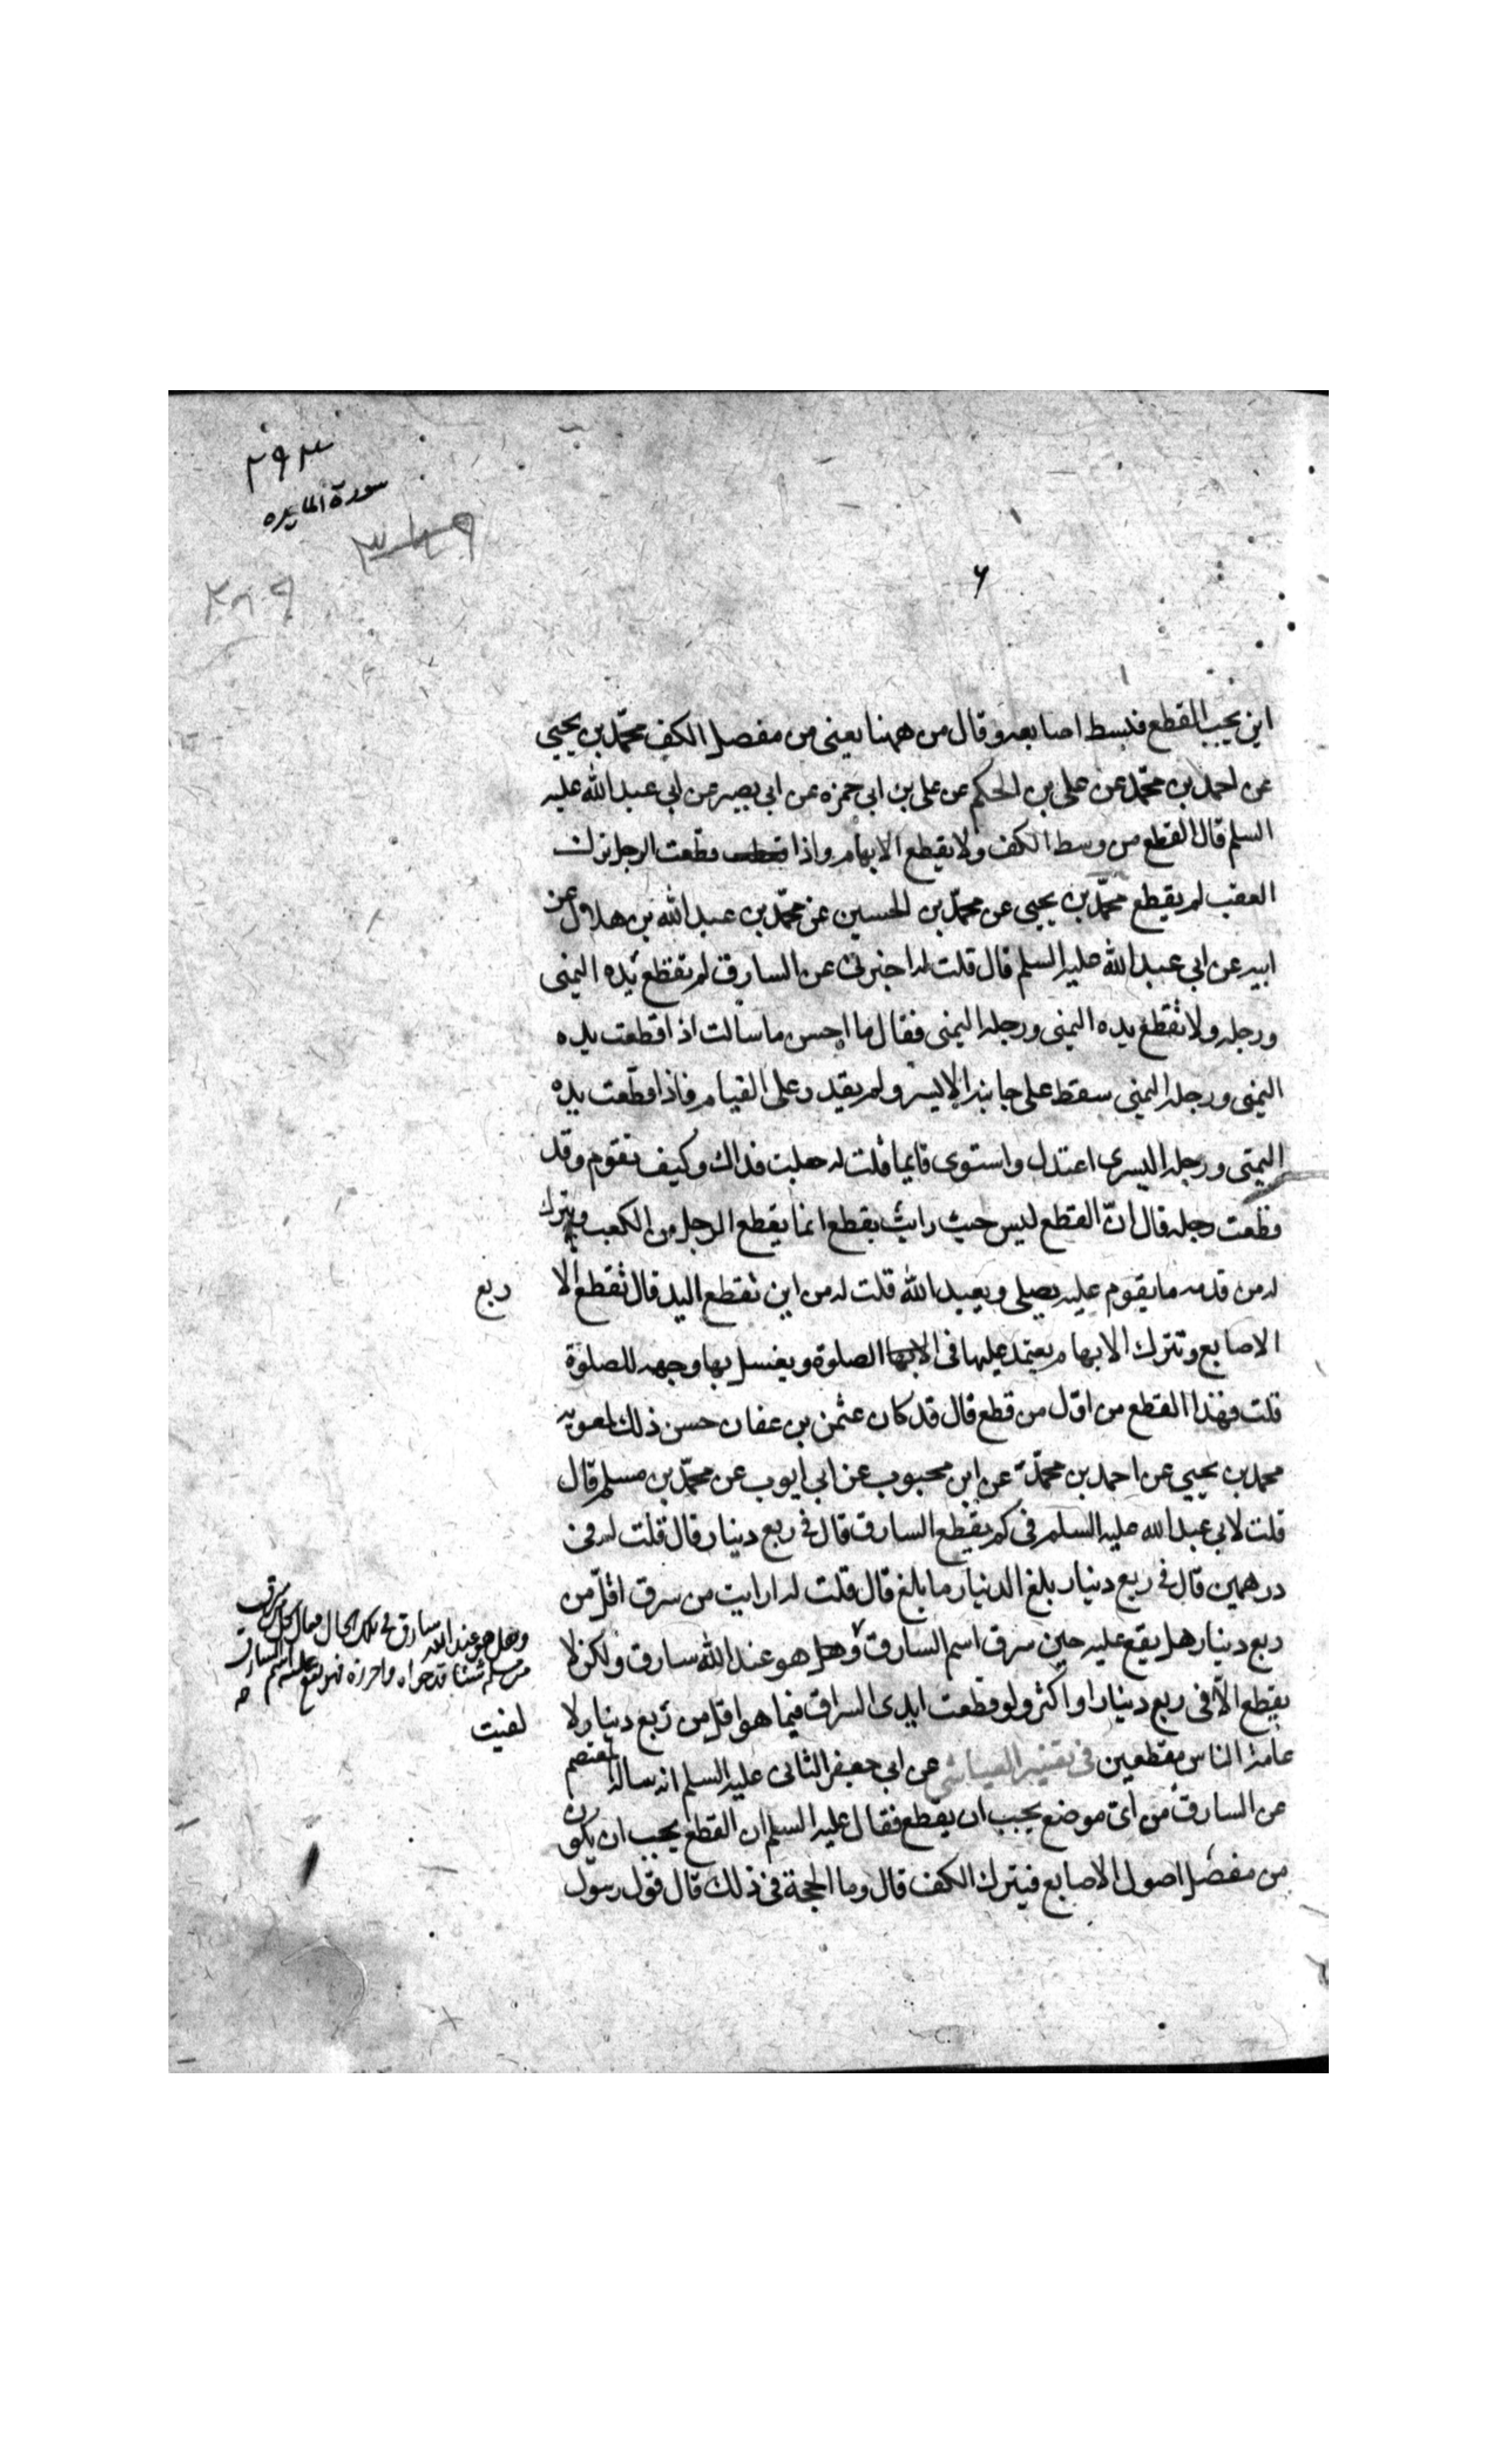 ٢٩٣
سورة المايده
٣٨٩
٣٨٩
٦
اين يجب القطع فبسط اصابعه وقال من ههنا يعنى من مفصل الكف محمّد بن يحيى
عن احمد بن محمّد عن على بن الحكم عن على بن ابى حمزه عن ابى بصير عن ابى عبد الله عليه
السلم قال القطع من وسط الكف ولا يقطع الابهام واذا قطعت الرجل ترك
العقب لم يقطع محمّد بن يحيى عن محمّد بن الحسين عن محمّد بن عبد الله بن هلال عن
ابيه عن ابى عبد الله عليه السلم قال قلت له اخبرنى عن السارق لم تقطع يده اليمنى
ورجله ولا تقطع يده اليمنى ورجله اليمنى فقال ما احسن ما سالت اذا قطعت يده
اليمنى ورجله اليمنى سقط على جانبه الايسر ولم يقدر على القيام فاذا قطعت يده
اليمنى ورجله اليسرى اعتدل واستوى قايما قلت له جعلت فداك وكيف يقوم وقد
قطعت رجله قال انّ القطع ليس حيث رايت يقطع انما يقطع الرجل من الكعب ويترك
له من قدمه ما يقوم عليه يصلى ويعبد الله قلت له من اين تقطع اليد قال تقطع الا
الاصابع وتترك الابهام يعتمد عليها فى الابها الصلوة ويغسل بها وجهه للصلوة
قلت فهذا القطع من اوّل من قطع قال قد كان عثمن بن عفان حسن ذلك لمعويه
محمد بن يحيى عن احمد بن محمّد عن ابن محبوب عن ابى ايوب عن محمّد بن مسلم قال
قلت لابى عبد الله عليه السلم فى كم يقطع السارق قال فى ربع دينار قال قلت له فى
درهمين قال فى ربع دينار بلغ الدينار ما بلغ قال قلت له ارايت من سرق اقلّ من
ربع دينار هل يقع عليه حين سرق اسم السارق وهل هو عند الله سارق ولكن لا
يقطع الّا فى ربع دينار او اكثر ولو قطعت ايدى السراق فيما هو اقل من ربع دينار لا
عامة الناس مقطعين فى تفسير العياشى عن ابى جعفر الثانى عليه السلم انه ساله المعتصم
عن السارق من اىّ موضع يجب ان يقطع فقال عليه السلم ان القطع يجب ان يكون
من مفصل اصول الاصابع فيترك الكف قال وما الحجة فى ذلك قال قول رسول
ربع
وهل هو عند الله سارق فى تلك الحال فقال كل من سرق
من مسلم شيئا قد حواه واحرزه فهو يقع عليه اسم السارق
لفنيت